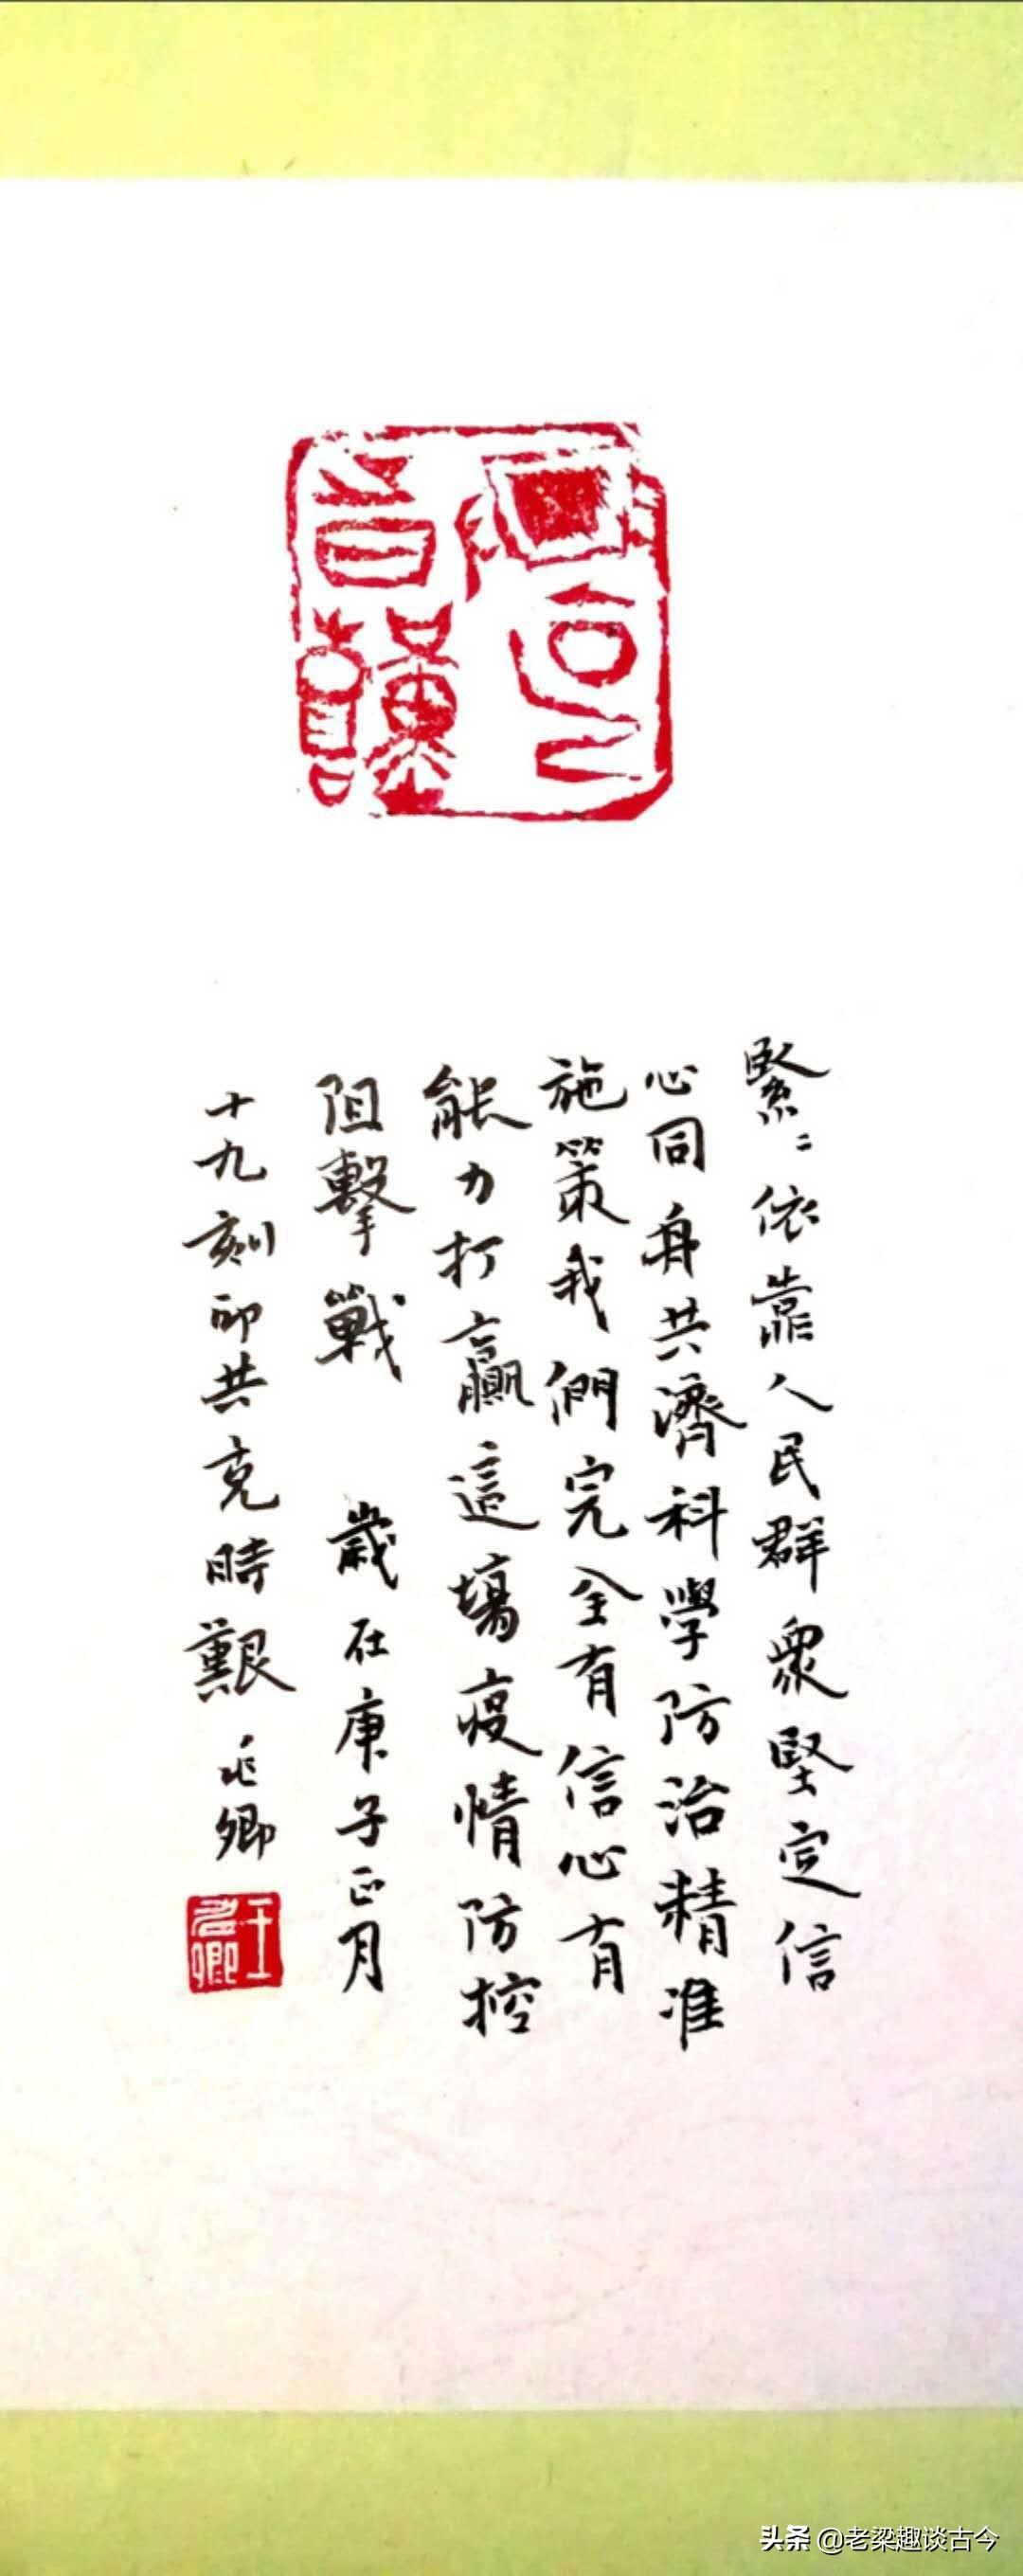 緊々依靠人民群眾堅定信
心同舟共濟科學防治精准
施策我們完全有信心有
能力打贏這場疫情防控
阻擊戰 歲在庚子正月
十九刻印共克時艱 兆卿
头条 @老梁趣谈古今